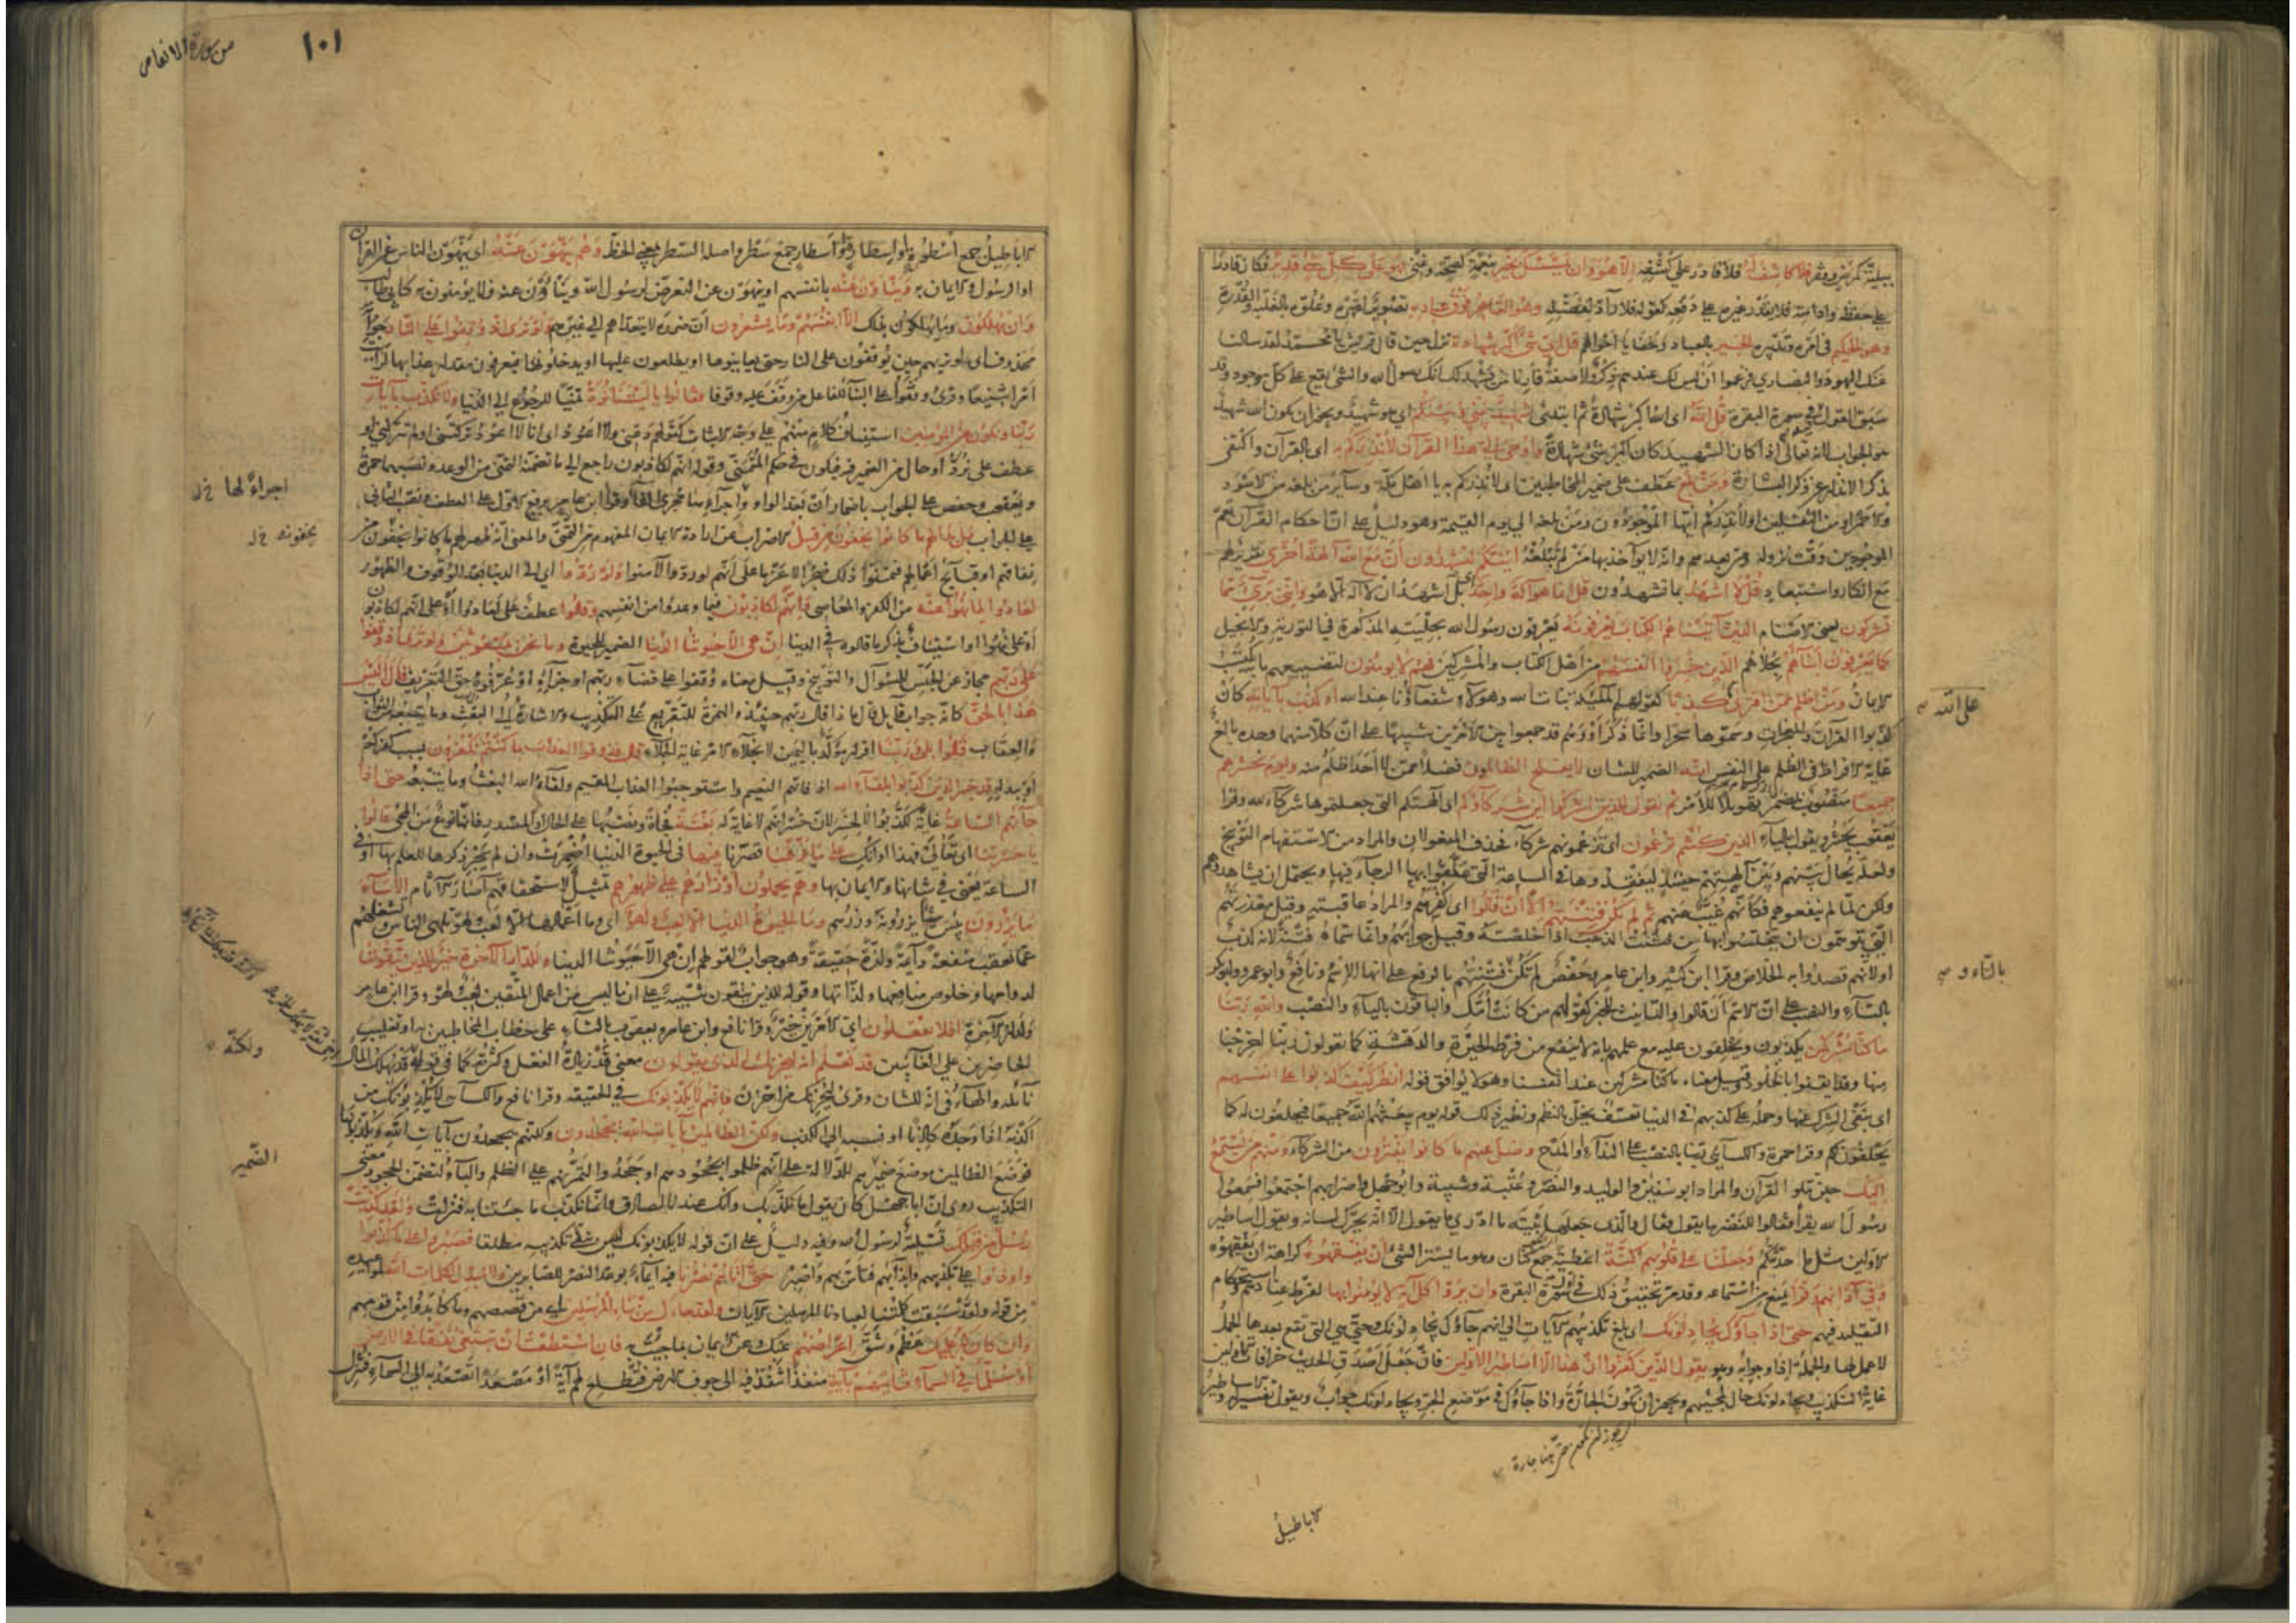 ببلية كمرض وفقر فلا كاشف له فلا قادر على كشفه الا هو وان يمسسك بخير بنعمة كصحة وغنى فهو على كل شئ قدير فكان قادرا
على حفظه وادامته فلا يقدر غيره على دفعه كقوله فلا راد لفضله وهو القاهر فوق عباده تصوير لقهره وعلوه بالغلبة والقدرة
وهو الحكيم في امره وتدبيره الخبير بالعباد وخفايا احوالهم قل اي شئ اكبر شهادة نزل حين قال قريش يا محمد لقد سالنا
عنك اليهود والنصارى فزعموا ان ليس لك عندهم ذكر ولا صفة فارنا من يشهد لك انك رسول الله والشئ يقع على كل موجود وقد
سبق القول فيه في سورة البقرة قل الله اى الله اكبر شهادة ثم ابتدئ شهيد بيني وبينكم اى هو شهيد ويجوز ان يكون الله شهيد
هو الجواب لانه تعالى اذا كان الشهيد كان اكبر شئ شهادة واوحى الى هذا القرآن لانذركم به اى بالقرآن واكتفى
بذكر الانذار عن ذكر البشارة ومن بلغ عطف على ضمير المخاطبين اى لانذركم به يا اهل مكة وسائر من بلغه من الاسود
والاحمر او من الثقلين او لانذركم ايها الموجودون ومن بلغه الى يوم القيمة وهو دليل على ان احكام القرآن تعم
الموجودين وقت نزوله ومن بعدهم وانه لا يؤاخذ بها من لم تبلغه ائنكم لتشهدون ان مع الله آلهة اخرى تقرير لهم
مع انكار واستبعاد قل لا اشهد بما تشهدون قل انما هو اله واحد بل اشهد ان لا اله الا هو وانني برئ مما
تشركون يعنى الاصنام الذين آتيناهم الكتاب يعرفونه يعرفون رسول الله بحليته المذكورة في التورية والانجيل
كما يعرفون ابناءهم بحلاهم الذين خسروا انفسهم من اهل الكتاب والمشركين فهم لا يؤمنون لتضييعهم ما يكتسب به
الايمان ومن اظلم ممن افترى كذبا كقولهم الملئكة بنات الله وهؤلاء شفعاؤنا عند الله او كذب بآياته كان
كذبوا القرآن والمعجزات وسموها سحرا وانما ذكر او وهم قد جمعوا بين الامرين تنبيها على ان كلا منهما وحده بالغ
غاية الافراط في الظلم على النفس انه الضمير للشان لا يفلح الظالمون فضلا عمن لا احد اظلم منه ويوم نحشرهم
جميعا منصوب بمضمر تهويلا للامر ثم نقول للذين اشركوا اين شركاؤكم اى آلهتكم التى جعلتموها شركاء لله وقرا
يعقوب يحشر ويقول بالياء الذين كنتم تزعمون اى تزعمونهم شركاء فحذف المفعولان والمراد من الاستفهام التوبيخ
ولعله يحال بينهم وبين آلهتهم حينئذ ليفقدوها في الساعة التى علقوا بها الرجاء فيها ويحتمل ان يشاهدوهم
ولكن لما لم ينفعوهم فكانهم غيب عنهم ثم لم تكن فتنتهم الا ان قالوا اى كفرهم والمراد عاقبته وقيل معذرتهم
التى يتوهمون ان يتخلصوا بها من فتنت الذهب اذا خلصته وقيل جوابهم وانما سماه فتنة لانه كذب
او لانهم قصدوا به الخلاص وقرا ابن كثير وابن عامر وحفص لم تكن فتنتهم بالرفع على انها الاسم ونافع وابو عمرو وابو بكر
بالتاء والنصب على ان الاسم ان قالوا والتانيث للخبر كقولهم من كانت امك والباقون بالياء والنصب والله ربنا
ما كنا مشركين يكذبون ويحلفون عليه مع علمهم بانه لا ينفع من فرط الحيرة والدهشة كما يقولون ربنا اخرجنا
منها وقد ايقنوا بالخلود وقيل معناه ما كنا مشركين عند انفسنا وهو لا يوافق قوله انظر كيف كذبوا على انفسهم
اى بنفى الشرك عنها وحمله على كذبهم في الدنيا تعسف يخل بالنظم ونظير ذلك قوله يوم يبعثهم الله جميعا فيحلفون له كما
يحلفون لكم وقرا حمزة والكسائي ربنا بالنصب على النداء او المدح وضل عنهم ما كانوا يفترون من الشركاء ومنهم من يستمع
اليك حين تتلو القرآن والمراد ابو سفين والوليد والنضر وعتبة وشيبة وابو جهل واضرابهم اجتمعوا فسمعوا
رسول الله يقرأ فقالوا للنضر ما يقول فقال والذى جعلها بيته ما ادرى ما يقول الا انه يحرك لسانه ويقول اساطير
الاولين مثل ما حدثتكم وجعلنا على قلوبهم اكنة اغطية جمع كنان وهو ما يستر الشئ ان يفقهوه كراهة ان يفقهوه
وفي آذانهم وقرا يمنع من استماعه وقد مر تحقيق ذلك في اول سورة البقرة وان يروا كل آية لا يؤمنوا بها لفرط عنادهم واستحكام
التقليد فيهم حتى اذا جاؤك يجادلونك اى بلغ تكذيبهم الآيات الى انهم جاؤك يجادلونك وحتى هى التى تقع بعدها الجمل
لا عمل لها والجملة اذا وجوابه وهو يقول الذين كفروا ان هذا الا اساطير الاولين فان جعل اصدق الحديث خرافات الاولين
غاية التكذيب ويجادلونك حال لمجيئهم ويجوز ان تكون الجارة واذا جاؤك في موضع الجر ويجادلونك جواب ويقول تفسير له والاساطير
على الله
بالتاء و
الاباطيل
من سورة الانعام
١٠١
الاباطيل جمع اسطورة او اسطارة او اسطار جمع سطر واصله السطر بمعنى الخط وهم ينهون عنه اى ينهون الناس عن القرآن
او الرسول والايمان به وينأون عنه بانفسهم او ينهون عن التعرض لرسول الله وينأون عنه فلا يؤمنون به كابي طالب
وان يهلكون وما يهلكون بذلك الا انفسهم وما يشعرون ان ضرره لا يتعداهم الى غيرهم ولو ترى اذ وقفوا على النار جوابه
محذوف اى لو تريهم حين يوقفون على النار حتى يعاينوها او يطلعون عليها او يدخلونها فيعرفون مقدار عذابها لرأيت
امرا شنيعا وقرئ وقفوا على البناء للفاعل من وقف عليه وقوفا فقالوا يا ليتنا نرد تمنيا للرجوع الى الدنيا ولا نكذب بآيات
ربنا ونكون من المؤمنين استيناف كلام منهم على وجه الاثبات كقولهم دعنى ولا اعود اى انا لا اعود تركتنى او لم تتركنى او
عطف على نرد او حال من الضمير فيه فيكون في حكم المتمنى وقوله انهم لكاذبون راجع الى ما تضمنه التمنى من الوعد ونصبهما حمزة
ويعقوب وحفص على الجواب باضمار ان بعد الواو اجراء لها مجرى الفاء وقرا ابن عامر برفع الاول على العطف ونصب الثانى
على الجواب بل بدا لهم ما كانوا يخفون من قبل الاضراب عن ارادة الايمان المفهوم من التمنى والمعنى انه ظهر لهم ما كانوا يخفون من
نفاقهم او قبائح اعمالهم فتمنوا ذلك ضجرا لا عزما على انهم لو ردوا لآمنوا ولو ردوا اى الى الدنيا بعد الوقوف والظهور
لعادوا لما نهوا عنه من الكفر والمعاصى وانهم لكاذبون فيما وعدوا من انفسهم وقالوا عطف على لعادوا او على انهم لكاذبون
او على نهوا او استيناف بذكر ما قالوه في الدنيا ان هى الا حيوتنا الدنيا الضمير للحيوة وما نحن بمبعوثين ولو ترى اذ وقفوا
على ربهم مجاز عن الحبس للسؤال والتوبيخ وقيل معناه وقفوا على قضاء ربهم او جزائه او عرفوه حق التعريف قال اليس
هذا بالحق كانه جواب قايل قال ماذا قال ربهم حينئذ والهمزة للتقريع على التكذيب والاشارة الى البعث وما يتبعه من الثواب
والعقاب قالوا بلى وربنا اقرار مؤكد باليمين لانجلاء الامر غاية الجلاء قال فذوقوا العذاب بما كنتم تكفرون بسبب كفركم
او ببدله قد خسر الذين كذبوا بلقاء الله اذ فاتهم النعيم واستوجبوا العذاب المقيم ولقاء الله البعث وما يتبعه حتى اذا
جاءتهم الساعة غاية لكذبوا لا لخسر لان خسرانهم لا غاية له بغتة فجأة ونصبها على الحال او المصدر فانها نوع من المجئ قالوا
يا حسرتنا اى تعالى فهذا اوانك على ما فرطنا قصرنا فيها في الحيوة الدنيا اضمرت وان لم يجر ذكرها للعلم بها او في
الساعة يعنى في شانها والايمان بها وهم يحملون اوزارهم على ظهورهم تمثيل لاستحقاقهم آصار الآثام الا ساء
ما يزرون بئس شيئا يزرونه وزرهم وما الحيوة الدنيا الا لعب ولهو اى وما اعمالها الا لعب ولهو تلهى الناس وتشغلهم
عما يعقب منفعة دائمة ولذة حقيقية وهو جواب لقولهم ان هى الا حيوتنا الدنيا وللدار الآخرة خير للذين يتقون
لدوامها وخلوص منافعها ولذاتها وقوله للذين يتقون تنبيه على ان ما ليس من اعمال المتقين لعب ولهو وقرا ابن عامر
ولدار الآخرة افلا تعقلون اى الامرين خير وقرا نافع وابن عامر ويعقوب بالتاء على خطاب المخاطبين به او تغليب
الحاضرين على الغائبين قد نعلم انه ليحزنك الذى يقولون معنى قد زيادة الفعل وكثرته كما في قوله قد يهلك المال
نائله والهاء في انه للشان وقرئ ليحزنك من احزن فانهم لا يكذبونك في الحقيقة وقرا نافع والكسائي لا يكذبونك من
اكذبه اذا وجده كاذبا او نسبه الى الكذب ولكن الظالمين بآيات الله يجحدون ولكنهم يجحدون آيات الله ويكذبونها
فوضع الظالمين موضع ضميرهم للدلالة على انهم ظلموا بجحودهم او جحدوا لتمرنهم على الظلم والباء لتضمن الجحود معنى
التكذيب روى ان ابا جهل كان يقول ما نكذبك وانك عندنا لصادق وانما نكذب ما جئتنا به فنزلت ولقد كذبت
رسل من قبلك تسلية لرسول الله وفيه دليل على ان قوله لا يكذبونك ليس لنفى تكذيبه مطلقا فصبروا على ما كذبوا
واوذوا على تكذيبهم وايذائهم فتاس بهم واصبر حتى اتاهم نصرنا فيه ايماء بوعد النصر للصابرين ولا مبدل لكلمات الله لمواعيده
من قوله ولقد سبقت كلمتنا لعبادنا المرسلين الآيات ولقد جاءك من نبأ المرسلين اى من قصصهم وما كابدوا من قومهم
وان كان كبر عليك عظم وشق اعراضهم عنك وعن الايمان بما جئت به فان استطعت ان تبتغى نفقا في الارض
او سلما في السماء فتأتيهم بآية منفذا تنفذ فيه الى جوف الارض فتطلع لهم آية او مصعدا تصعد به الى السماء فتنزل
اجراء لها
يخفونه
ولكنه
الضمير